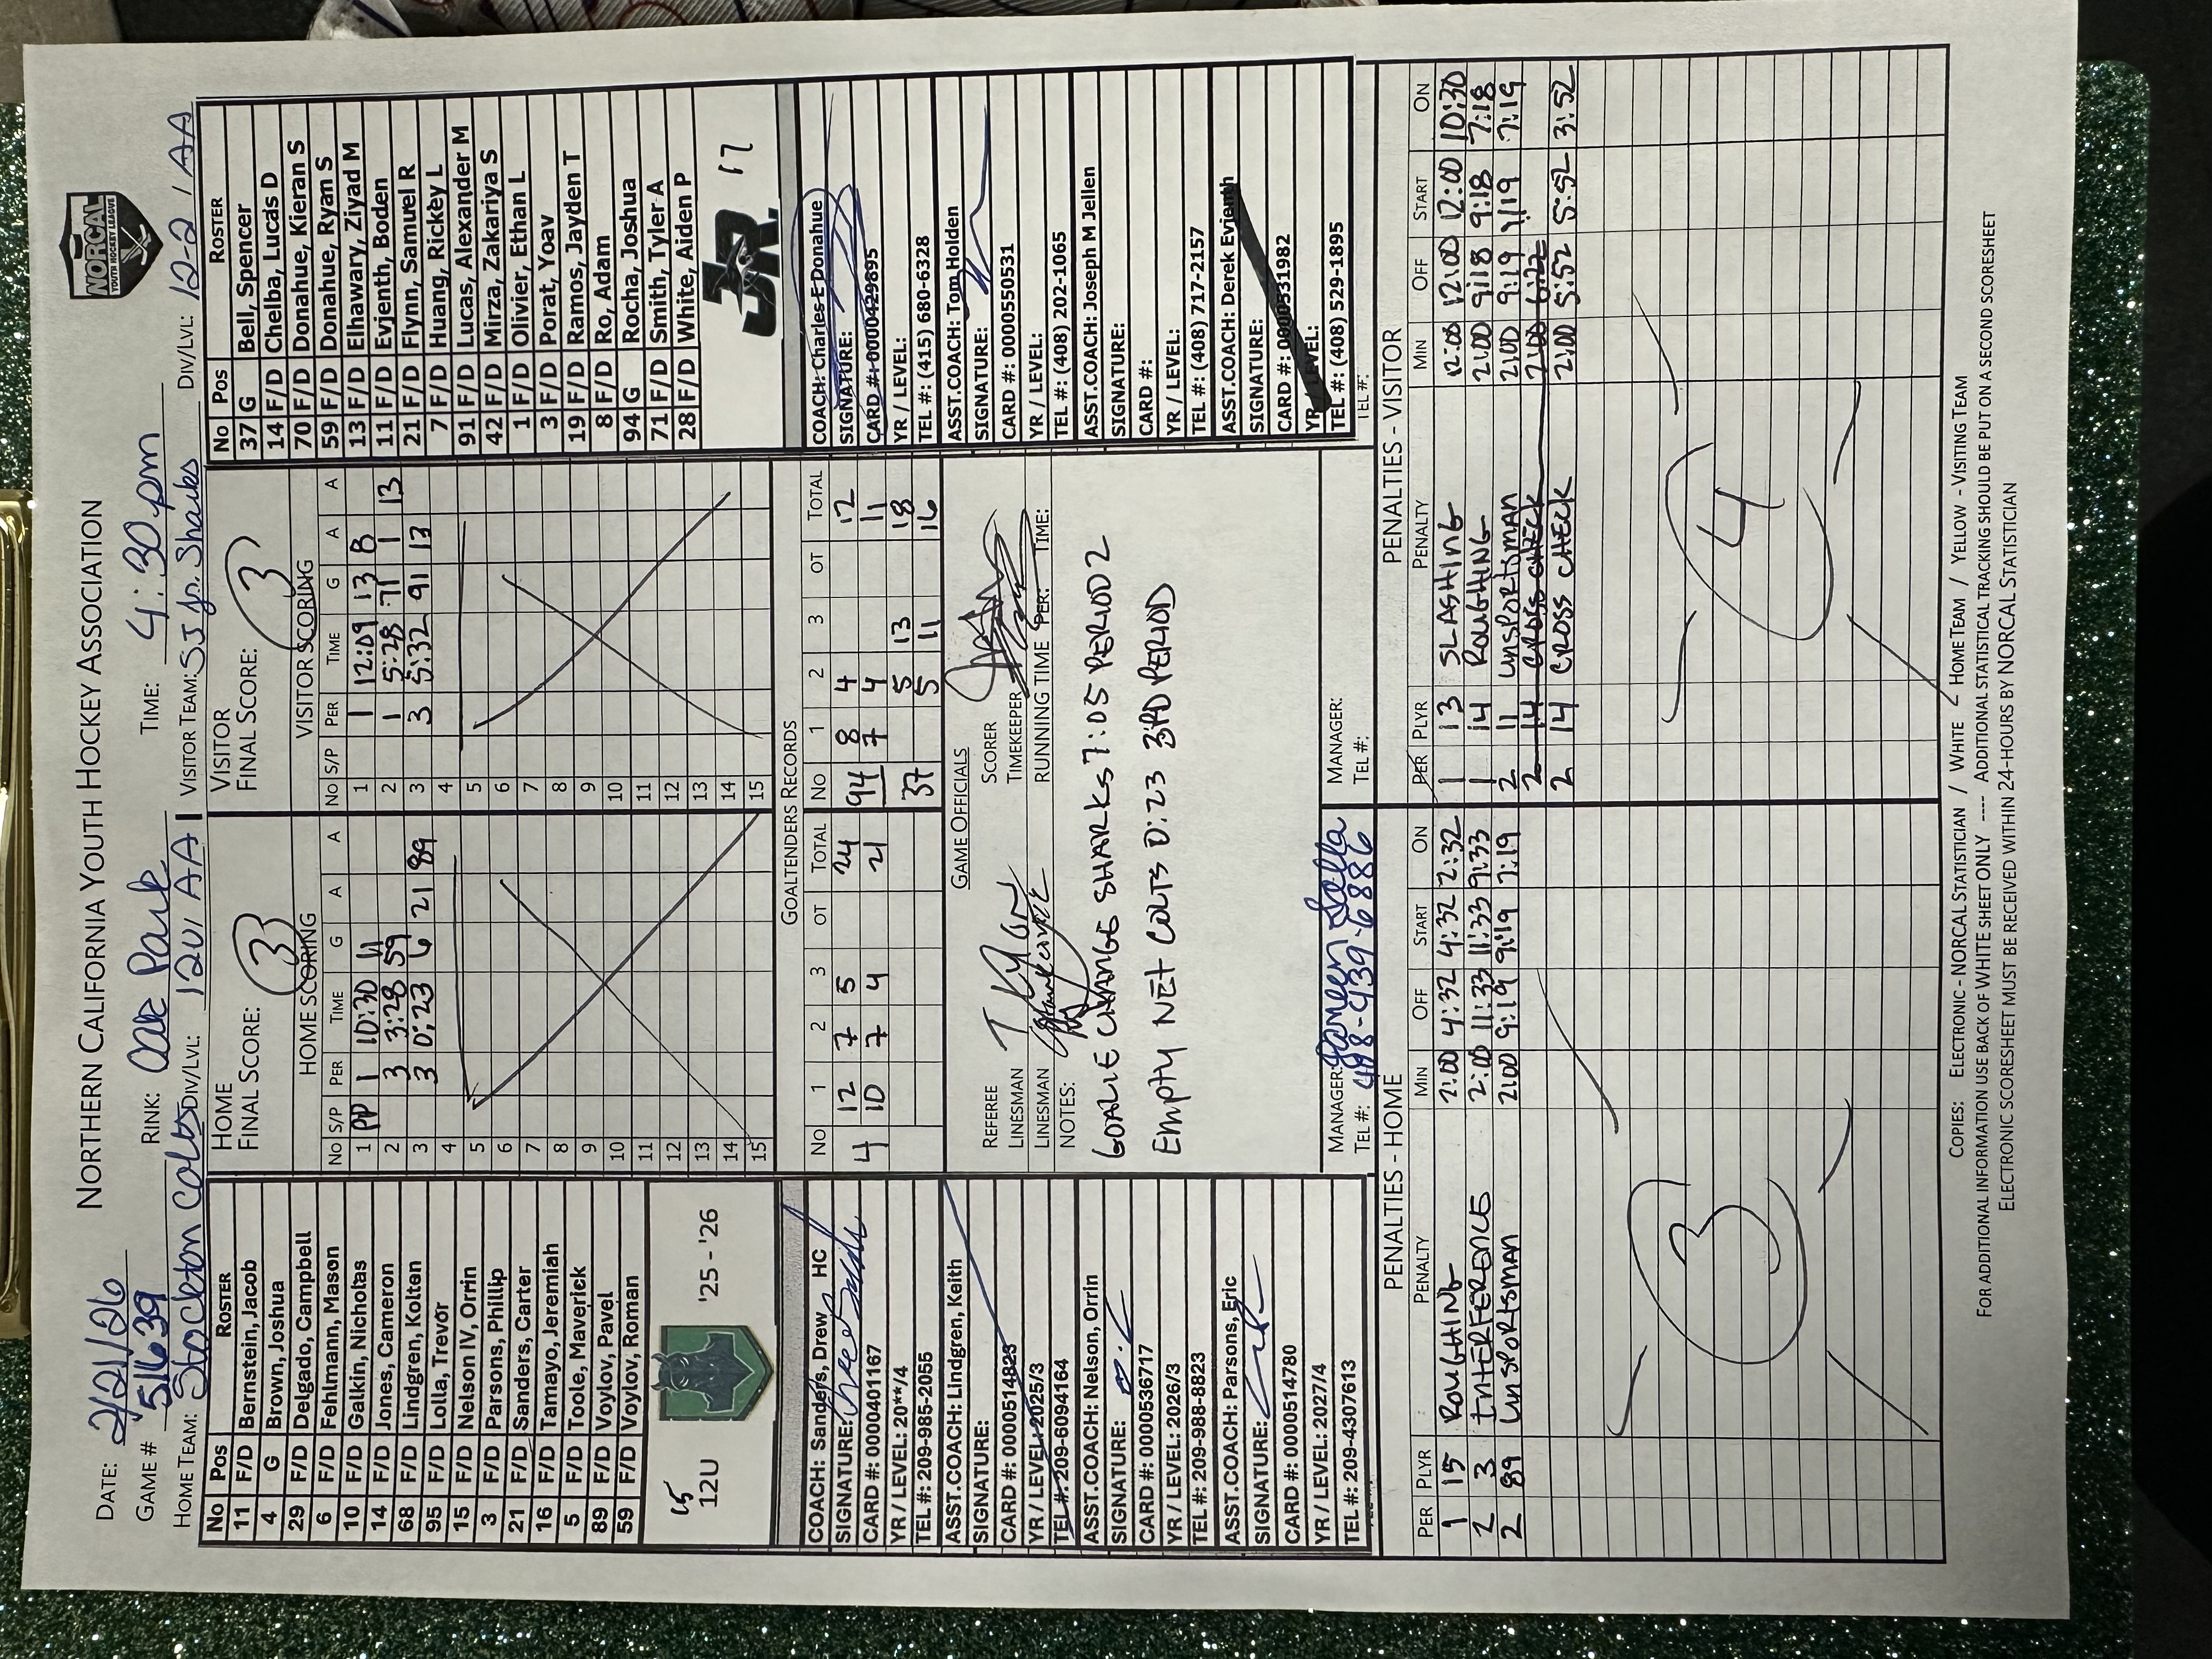 NORTHERN CALIFORNIA YOUTH HOCKEY ASSOCIATION
NORCAL
YOUTH HOCKEY LEAGUE
DATE: 2/21/26 RINK: Oak Park TIME: 4:30pm
GAME # 511639
HOME TEAM: Stockton Colts DIV/LVL: 12U1 AA1 VISITOR TEAM: SJ Jr. Sharks DIV/LVL: 12-2 / AA
No Pos ROSTER
11 F/D Bernstein, Jacob
4 G Brown, Joshua
29 F/D Delgado, Campbell
6 F/D Fehlmann, Mason
10 F/D Galkin, Nicholtas
14 F/D Jones, Cameron
68 F/D Lindgren, Kolten
95 F/D Lolla, Trevor
15 F/D Nelson IV, Orrin
3 F/D Parsons, Phillip
21 F/D Sanders, Carter
16 F/D Tamayo, Jeremiah
5 F/D Toole, Maverick
89 F/D Voylov, Pavel
59 F/D Voylov, Roman
15
12U '25 - '26
HOME
FINAL SCORE: 3
HOME SCORING
No S/P PER TIME G A A
1 PP 1 10:30 11
2 3 3:28 59
3 3 0:23 6 21 89
4
5
6
7
8
9
10
11
12
13
14
15
VISITOR
FINAL SCORE: 3
VISITOR SCORING
No S/P PER TIME G A A
1 1 12:09 13 8
2 1 5:28 71 1 13
3 3 5:32 91 13
4
5
6
7
8
9
10
11
12
13
14
15
No Pos ROSTER
37 G Bell, Spencer
14 F/D Chelba, Lucas D
70 F/D Donahue, Kieran S
59 F/D Donahue, Ryan S
13 F/D Elhawary, Ziyad M
11 F/D Evjenth, Boden
21 F/D Flynn, Samuel R
7 F/D Huang, Rickey L
91 F/D Lucas, Alexander M
42 F/D Mirza, Zakariya S
1 F/D Olivier, Ethan L
3 F/D Porat, Yoav
19 F/D Ramos, Jayden T
8 F/D Ro, Adam
94 G Rocha, Joshua
71 F/D Smith, Tyler A
28 F/D White, Aiden P
JR. 17
COACH: Sanders, Drew HC
SIGNATURE:
CARD #: 0000401167
YR / LEVEL: 20**/4
TEL #: 209-985-2055
ASST.COACH: Lindgren, Keith
SIGNATURE:
CARD #: 0000514823
YR / LEVEL: 2025/3
TEL #: 209-6094164
ASST.COACH: Nelson, Orrin
SIGNATURE:
CARD #: 0000536717
YR / LEVEL: 2026/3
TEL #: 209-988-8823
ASST.COACH: Parsons, Eric
SIGNATURE:
CARD #: 0000514780
YR / LEVEL: 2027/4
TEL #: 209-4307613
GOALTENDERS RECORDS
No 1 2 3 OT TOTAL No 1 2 3 OT TOTAL
4 12 7 5 24 94 8 4 12
10 7 4 21 7 4 11
37 5 13 18
5 11 16
GAME OFFICIALS
REFEREE SCORER
LINESMAN TIMEKEEPER
LINESMAN RUNNING TIME PER: TIME:
NOTES:
GOALIE CHANGE SHARKS 7:05 PERIOD 2
EMPTY NET COLTS 0:23 3RD PERIOD
MANAGER: Jameen Lolla
TEL #: 408-439-6886
MANAGER:
TEL #:
COACH: Charles E Donahue
SIGNATURE:
CARD #: 0000429895
YR / LEVEL:
TEL #: (415) 680-6328
ASST.COACH: Tom Holden
SIGNATURE:
CARD #: 0000550531
YR / LEVEL:
TEL #: (408) 202-1065
ASST.COACH: Joseph M Jellen
SIGNATURE:
CARD #:
YR / LEVEL:
TEL #: (408) 717-2157
ASST.COACH: Derek Evjenth
SIGNATURE:
CARD #: 0000531982
YR / LEVEL:
TEL #: (408) 529-1895
TEL #:
PENALTIES - HOME
PER PLYR PENALTY MIN OFF START ON
1 15 ROUGHING 2:00 4:32 4:32 2:32
2 3 INTERFERENCE 2:00 11:33 11:33 9:33
2 89 UNSPORTSMAN 2:00 9:19 9:19 7:19
3
PENALTIES - VISITOR
PER PLYR PENALTY MIN OFF START ON
1 13 SLASHING 12:00 12:00 12:00 10:30
1 14 ROUGHING 2:00 9:18 9:18 7:18
2 11 UNSPORTSMAN 2:00 9:19 9:19 7:19
2 14 CROSS CHECK 2:00 6:22
2 14 CROSS CHECK 2:00 5:52 5:52 3:52
4
COPIES: ELECTRONIC - NORCAL STATISTICIAN / WHITE - HOME TEAM / YELLOW - VISITING TEAM
FOR ADDITIONAL INFORMATION USE BACK OF WHITE SHEET ONLY ---- ADDITIONAL STATISTICAL TRACKING SHOULD BE PUT ON A SECOND SCORESHEET
ELECTRONIC SCORESHEET MUST BE RECEIVED WITHIN 24-HOURS BY NORCAL STATISTICIAN